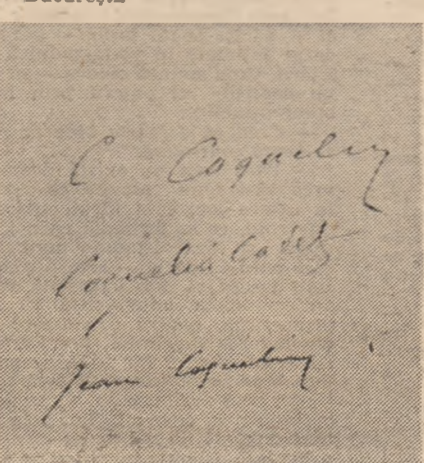 C Coquelin
Coquelin Cadet
Jean Coquelin